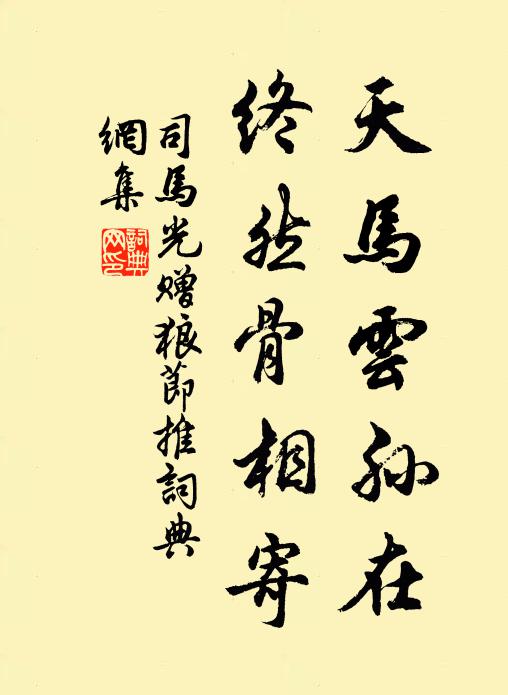 天馬雲孫在
終然骨相寄
司馬光贈狼節推詞典
網集
詞典
网印